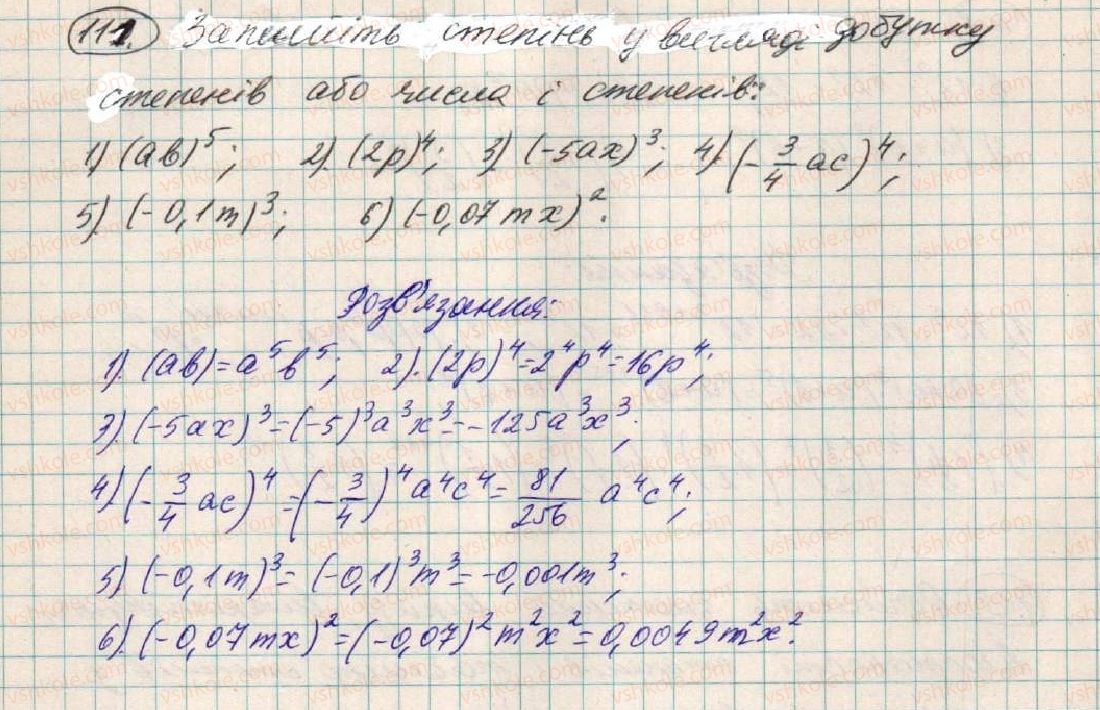 111. Запишіть степінь у вигляді добутку
степенів або числа і степенів:
1) (ав)⁵; 2). (2p)⁴; 3) (-5ax)³; 4). (-3/4 ac)⁴;
5). (-0,1m)³; 6) (-0,07mx)².
Розв'язання:
1). (ав)=a⁵в⁵; 2). (2p)⁴=2⁴p⁴=16p⁴;
3). (-5ax)³=(-5)³a³x³=-125a³x³;
4) (-3/4 ac)⁴=(-3/4)⁴a⁴c⁴=81/256 a⁴c⁴;
5) (-0,1m)³=(-0,1)³m³=-0,001m³;
6). (-0,07mx)²=(-0,07)²m²x²=0,0049m²x².
vshkole.com